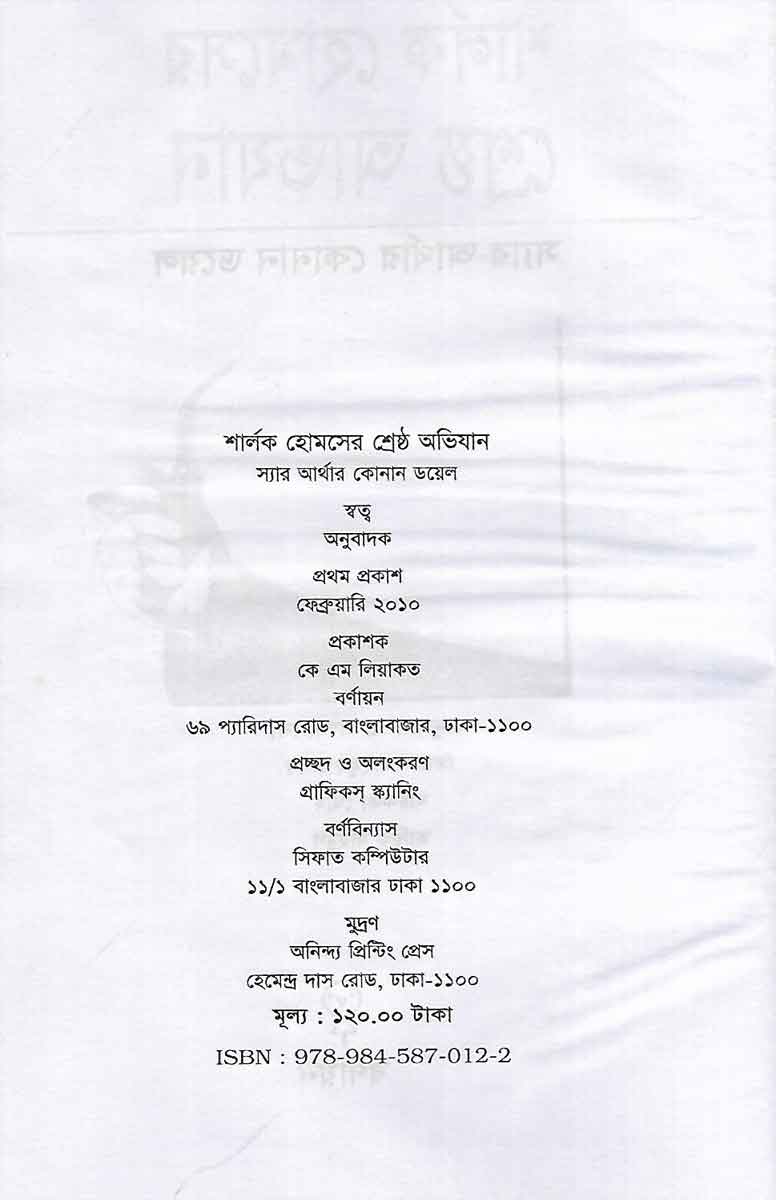 শার্লক হোমসের শ্রেষ্ঠ অভিযান
স্যার আর্থার কোনান ডয়েল
স্বত্ব
অনুবাদক
প্রথম প্রকাশ
ফেব্রুয়ারি ২০১০
প্রকাশক
কে এম লিয়াকত
বর্ণায়ন
৬৯ প্যারিদাস রোড, বাংলাবাজার, ঢাকা-১১০০
প্রচ্ছদ ও অলংকরণ
গ্রাফিকস্ স্ক্যানিং
বর্ণবিন্যাস
সিফাত কম্পিউটার
১১/১ বাংলাবাজার ঢাকা ১১০০
মুদ্রণ
অনিন্দ্য প্রিন্টিং প্রেস
হেমেন্দ্র দাস রোড, ঢাকা-১১০০
মূল্য : ১২০.০০ টাকা
ISBN : 978-984-587-012-2